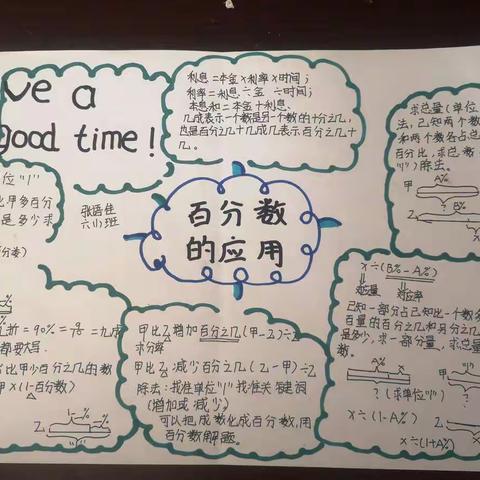 ve a
good time!
利息=本金×利率×时间;
利率=利息÷本金÷时间;
本息和=本金+利息.
几成表示一个数是另一个数的十分之几,
也是百分之几十,几成几表示百分之几十
几。
求总量(单位
法,已知两个数
和两个数各占总
百分比,求总数
)除法。
甲 A%
?
乙 B%
位"1"
比甲多百分
是多少求
张语佳
六(1)班
百分数
的应用
x÷(B%-A%)
对应量 对应率
已知一部分占已知比一个数多
百量的百分之几和另分之几
是多少,求一部分量,求总量
数。
A%
? (求单位"1")
x÷(1-A%)
x÷(1+A%)
甲
乙
折=90%=9/10=九成
都要大写.
比甲少百分之几的数
甲×(1-百分数)
1-%
乙
甲比乙增加百分之几(甲-乙)÷乙
求分率
甲比乙减少百分之几(乙-甲)÷乙
除法:找准单位"1"找准关键词
(增加或减少)
可以把成数化成百分数,用
百分数解题。